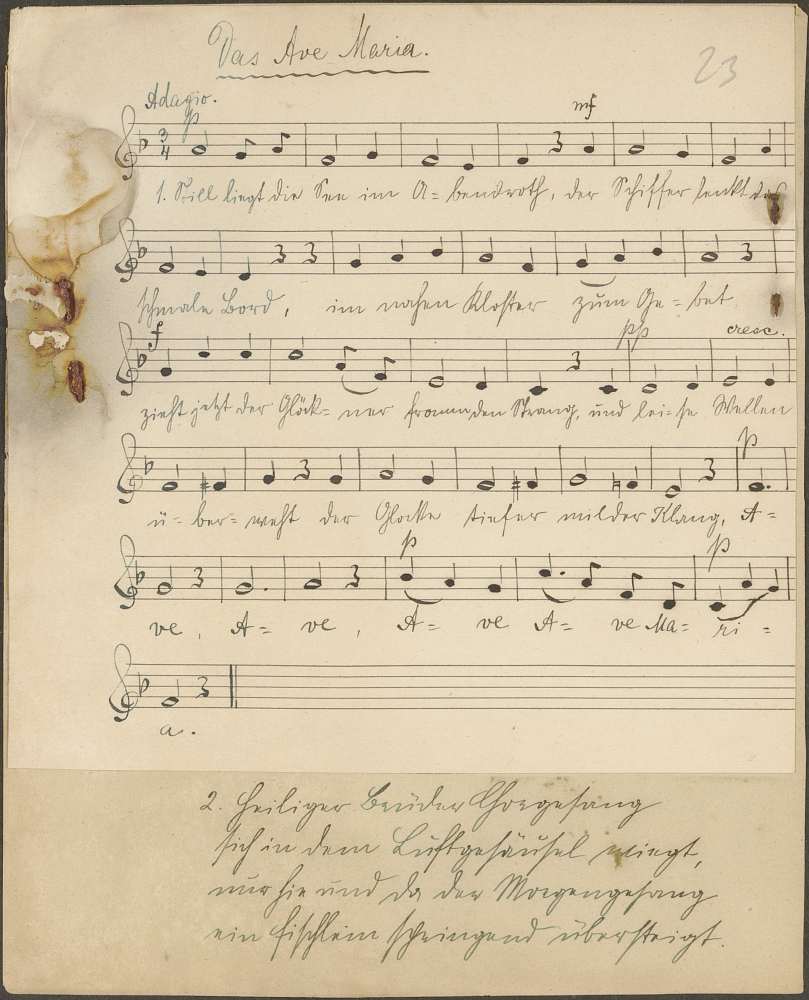 Das Ave Maria.
23
Adagio.
p mf
3
4
1. Still liegt die See im A=bendroth, der Schiffer lenkt das
schmale Bord, im nahen Kloster zum Ge=bet
f pp cresc.
zieht jetzt der Glöck=ner fromm den Strang, und lei=se Wellen
p
ü=ber=weht der Glocke tiefer milder Klang, A=
p p
ve, A=ve, A=ve A=ve Ma=ri=
a.
2. Heiliger Brüder Chorgesang
sich in dem Luftgesäusel wiegt,
nur hie und da der Wogengesang
ein Fischlein springend übersteigt.